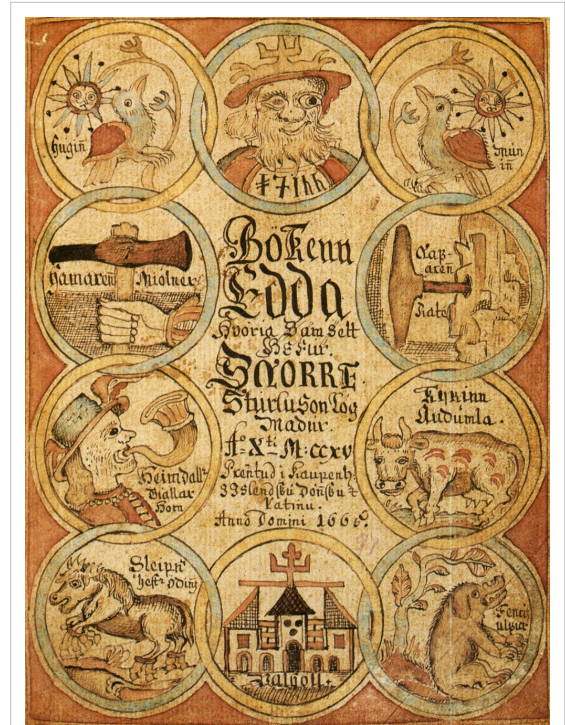 Hugin
Mun
in
Hamaren Miolner
Bökenn
Edda
Hvoria Samsett
Hefur.
SNORRE.
Sturluson Log
Madur.
Aº Xti M:ccxv
Prentud i Kaupenh
Islendsku Donsku &
Latinu.
Anno Domini 1665.
Kyrinn
Audumla.
Heimdall
Giallar
Horn
Sleipner
hestr Odins
Valholl.
Fenris
ulfur